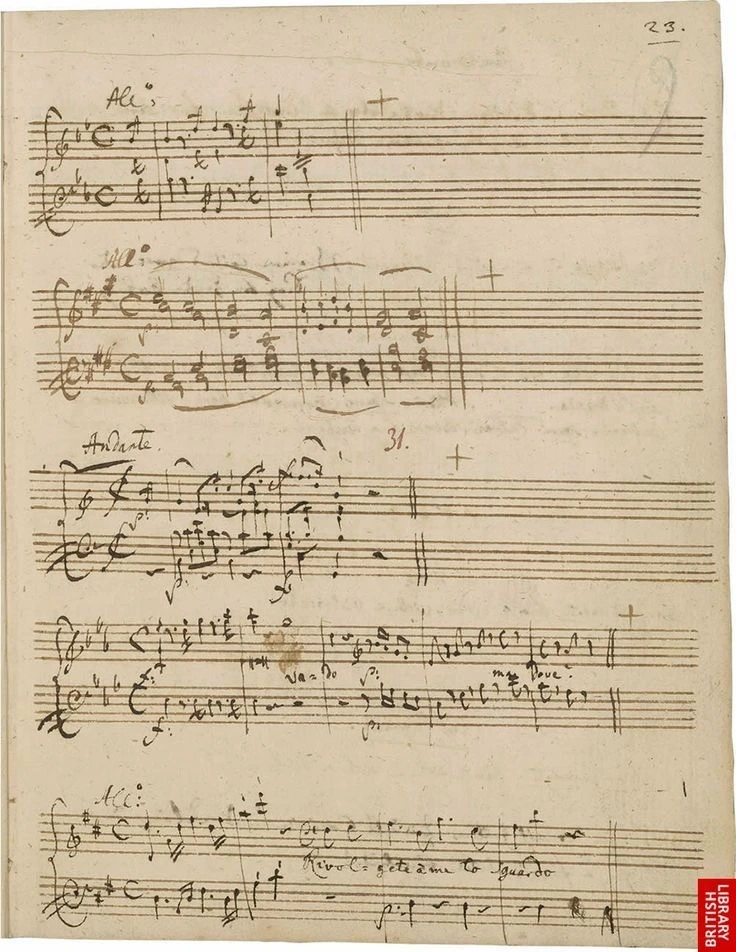 23.
All:º
All:º
p:
p:
Andante.
31.
p:
p:
f:
f:
va = do
p:
ma Dove?
f:
p:
All:º
Rivol = gete à me lo sguardo
p:
LIBRARY
BRITISH